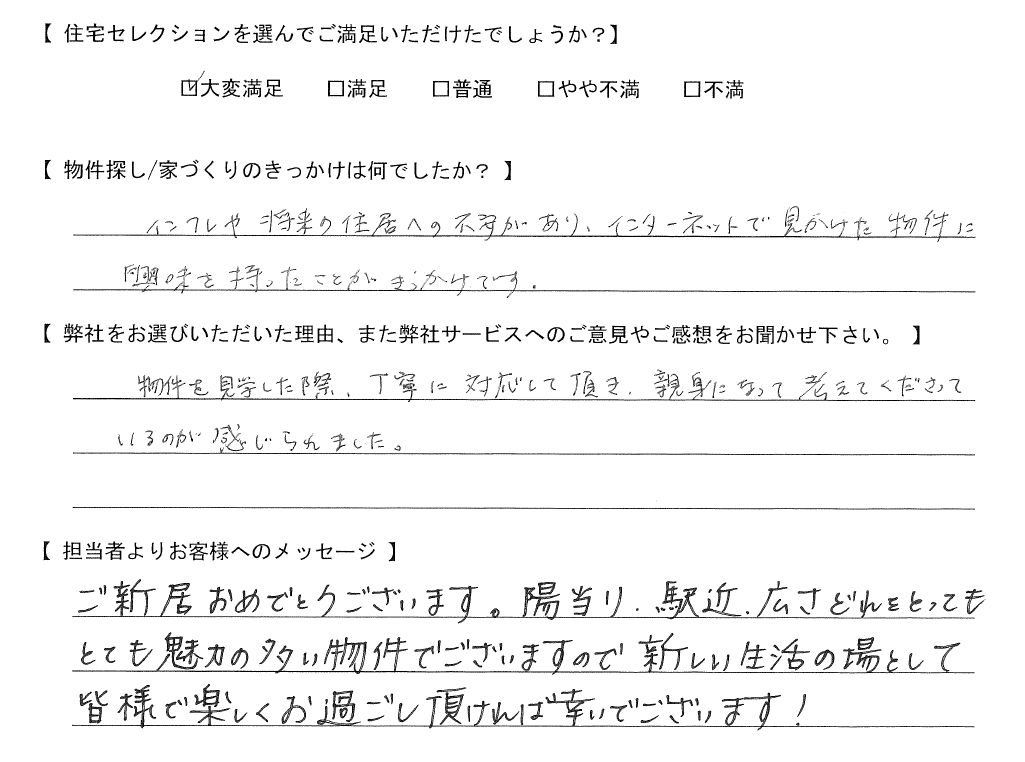 【 住宅セレクションを選んでご満足いただけたでしょうか？】
☑大変満足 □満足 □普通 □やや不満 □不満
【 物件探し/家づくりのきっかけは何でしたか？ 】
インフレや将来の住居への不安があり、インターネットで見かけた物件に
興味を持ったことがきっかけです。
【 弊社をお選びいただいた理由、また弊社サービスへのご意見やご感想をお聞かせ下さい。 】
物件を見学した際、丁寧に対応して頂き、親身になって考えてくださって
いるのが感じられました。
【 担当者よりお客様へのメッセージ 】
ご新居おめでとうございます。陽当り、駅近、広さどれをとっても
とても魅力の多い物件でございますので新しい生活の場として
皆様で楽しくお過ごし頂ければ幸いでございます！